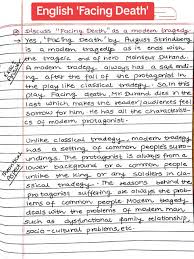 English 'Facing Death'
Q Discuss "Facing Death" as a modern tragedy.
→ Yes, "Facing Death" by August Strindberg
is a modern tragedy as it ends with
the tragic end of hero Monsieur Durand.
A modern tragedy always has a sad end-
ing after the fall of the protagonist in
the play like classical tragedy. So in this
play, Facing death, Mr Durand dies in the
last which makes the reader/audiences feel
sorrow for him. He has all the characteristics
of modern protagonist.
Unlike classical tragedy, modern tragedy
has a setting of common people's surro-
undings. The protagonist is always from a
lower background or a common people
unlike the king or any soldiers in clas-
sical tragedy. The reasons behind the
protagonist's suffering are always the prob-
lems of common people. Modern tragedy
deals with the problems of modern man
such as dysfunctional family relationship,
socio-cultural problems, etc.